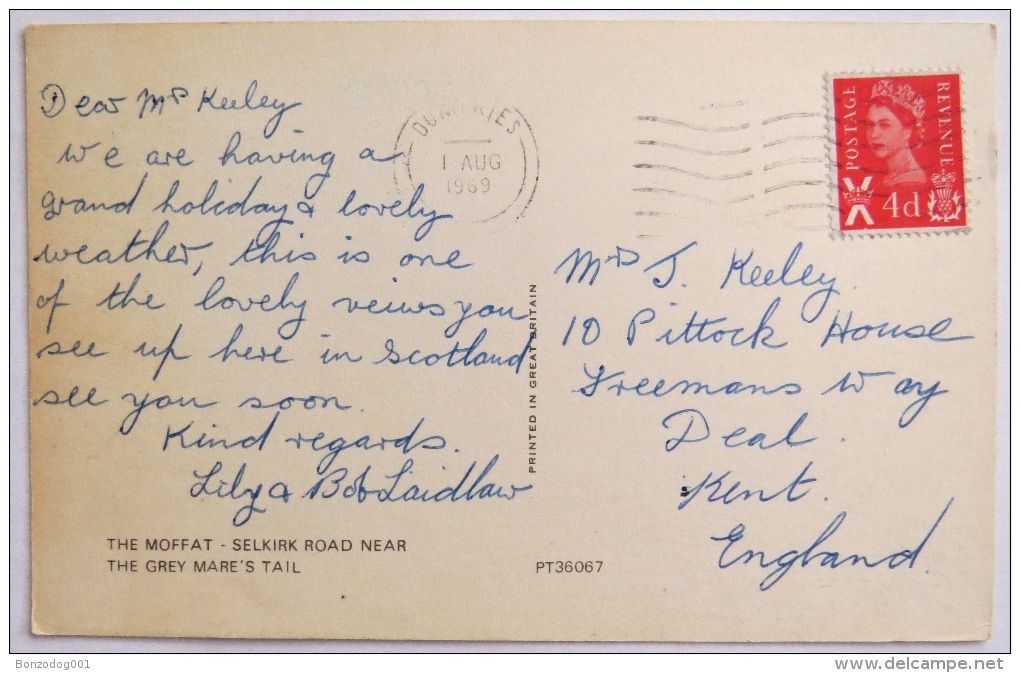 Dear Mrs Keeley
we are having a
grand holiday & lovely
weather, this is one
of the lovely veiws you
see up here in Scotland
see you soon.
Kind regards.
Lily & Bob Laidlaw
THE MOFFAT - SELKIRK ROAD NEAR
THE GREY MARE'S TAIL
PT36067
PRINTED IN GREAT BRITAIN
DUMFRIES
1 AUG
1969
POSTAGE
REVENUE
4d
Mrs J. Keeley.
10 Pittock House
Freemans Way
Deal.
Kent.
England.
Bonzodog001
www.delcampe.net